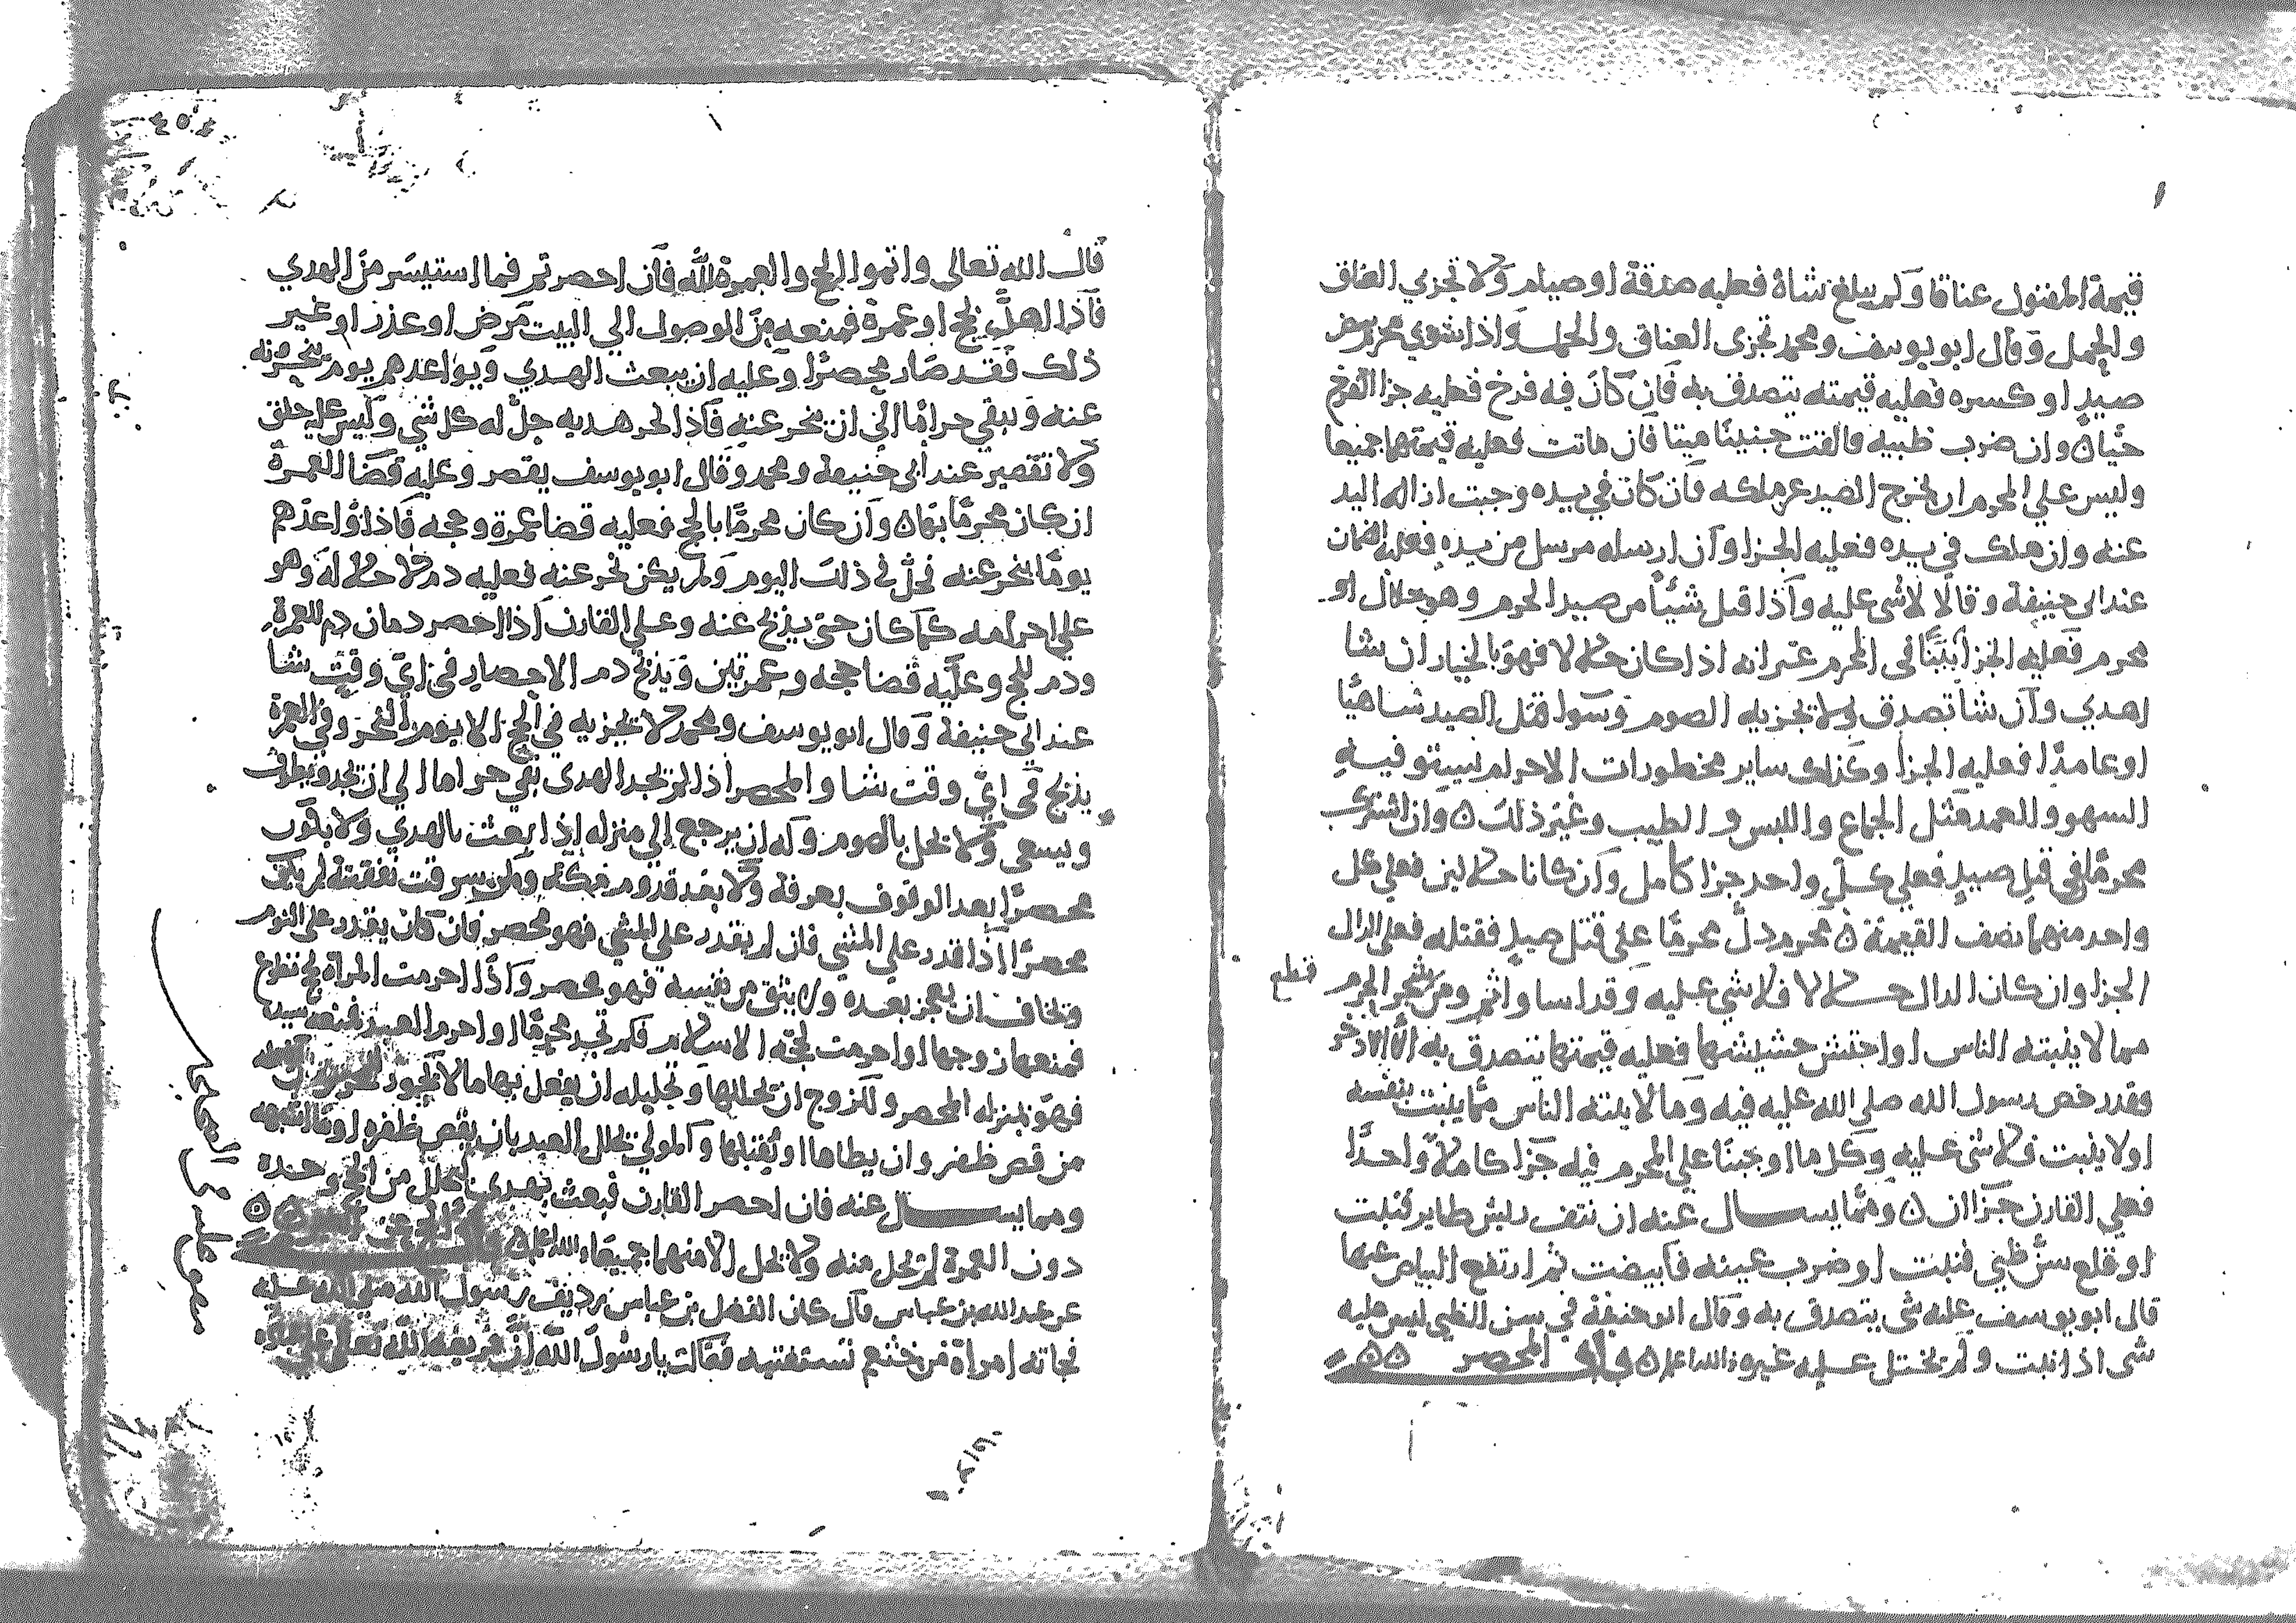 قيمة المقتول عناقا ولم يبلغ شاة فعليه صدقة او صيام ولا تجزي العناق
والحمل وقال ابو يوسف ومحمد تجزى العناق والحمل واذا شوي محرم بيض
صيد او كسره فعليه قيمته يتصدق به فان كان فيه فرخ فعليه جزا الفرخ
حيا ن وان ضرب ظبيه فالقت جنينا ميتا فان ماتت فعليه قيمتهما جميعا
وليس علي المحرم ان يخرج الصيد عن ملكه فان كان في يده وجبت ازاله اليد
عنه وان هلك في يده فعليه الجزا وان ارسله مرسل من يده فعليه الضمان
عند ابى حنيفة وقالا لا شى عليه واذا قتل شيئا من صيد الحرم وهو حلال او
محرم فعليه الجزا في المحرم غير انه اذا كان حلالا فهو بالخيار ان شا
اهدي وان شا تصدق ولا يجزيه الصوم وسوا قتل الصيد ساهيا
او عامدا فعليه الجزا وكذلك ساير محظورات الاحرام يستوي فيه
السهو والعمد مثل الجماع واللبس والطيب وغير ذلك ن وان اشترك
محرما في قتل صيد فعلي كل واحد جزا كامل وان كانا حلالين فعلي كل
واحد منهما نصف القيمة ن محرم دل محرما على قتل صيد فقتله فعلى الدال
الجزا وان كان الدال حلالا فلا شي عليه وقد اسا واثم ومن شجر الحرم
قطع
مما لا ينبته الناس او احتش حشيشها فعليه قيمتها يتصدق به الا الاذخر
وقد رخص رسول الله صلى الله عليه فيه وما لا ينبته الناس مما ينبت بنفسه
او لا ينبت فلا شى عليه وكلما اوجبنا على المحرم فيه جزا كاملا واحدا
فعلي القارن جزاان ن ومما يسال عنه ان نتف ريش طاير فنبت
او قلع سن ظبي فنبت او ضرب عينه فابيضت ثم ارتفع البياض عنها
قال ابو يوسف عليه شى يتصدق به وقال ابو حنيفة في سن الظبي ليس عليه
شى اذا نبت ولم يختل عليه غيره والله اعلم ن باب المحصر ن ن
قال الله تعالى واتموا الحج والعمرة لله فان احصرتم فما استيسر من الهدي
فاذا اهل بحج او عمرة فمنعه من الوصول الي البيت مرض او عذر او غير
ذلك فقد صار محصرا وعليه ان يبعث الهدي ويواعدهم يوم ينحرونه
عنه ويبقي حراما الي ان ينحر عنه فاذا نحر هديه حل له كل شي وليس عليه حلق
ولا تقصير عند ابي حنيفة ومحمد وقال ابو يوسف يقصر وعليه قضا العمرة
ان كان محرما بها ن وان كان محرما بالحج فعليه قضا عمرة وحجه فاذا واعدهم
يوما ينحر عنه فحل في ذلك اليوم ولم يكن نحر عنه فعليه دم لاحلاله وهو
علي احرامه كما كان حتى يذبح عنه وعلي القارن اذا احصر دمان دم للعمرة
ودم للحج وعليه قضا حجه وعمرتين ويذبح دم الاحصار في اي وقت شا
عند ابي حنيفة وقال ابو يوسف ومحمد لا يجزيه في الحج الا يوم النحر وفي العمرة
يذبح في اي وقت شا والمحصر اذا لم يجد الهدى بقي حراما الي ان يجد ويطوف
ويسعى ولا يحل بالصوم وله ان يرجع الي منزله اذا بعث بالهدي ولا يكون
محصرا بعد الوقوف بعرفة ولا بعد قدومه مكة ومن سرقت نفقته لم يكن
محصرا اذا قدر علي المشي فان لم يقدر على المشي فهو محصر فان كان يقدر على اليوم
ويخاف ان يعجز بعده ولا يثق من نفسه فهو محصر واذا احرمت المراة بحج تطوع
فمنعها زوجها او احرمت بحجة الاسلام فلم تجد محرما او احرم العبد فمنعه سيده
فهو بمنزله المحصر وللزوج ان يحللها وتحليله ان يفعل بها ما لا يجوز
من قص ظفر وان يطاها او يقبلها والمولي يحلل العبد بان يقص ظفره او
ومما يسال عنه فان احصر القارن فبعث بهدي ليحلل من الحج وحده
دون العمرة لم يحل منه ولا يحل الا منهما جميعا والله اعلم ن باب الحج عن ن ن
عن عبد الله بن عباس قال كان الفضل بن عباس رديف رسول الله صلى الله عليه
فجاته امراة من خثعم تستفتيه فقالت يا رسول الله ان فريضة الله تعالى على عباده